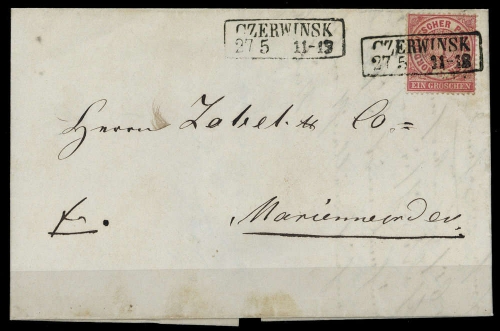 CZERWINSK
27 5 11-12
CZERWINSK
27 5 11-12
EIN GROSCHEN
Herrn Zobel & Co=
fr.
Marienwerder